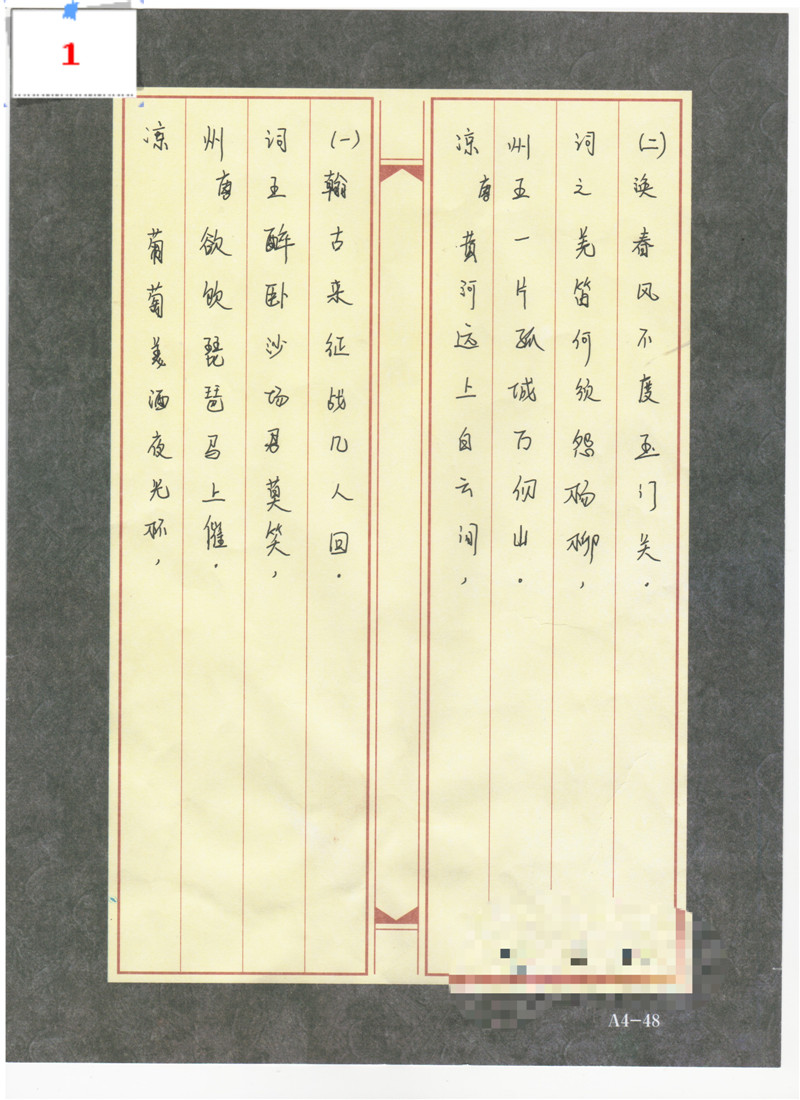 凉州词(一)
唐王翰
葡萄美酒夜光杯,
欲饮琵琶马上催.
醉卧沙场君莫笑,
古来征战几人回.
凉州词(二)
唐王之涣
黄河远上白云间,
一片孤城万仞山.
羌笛何须怨杨柳,
春风不度玉门关.
1
A4-48